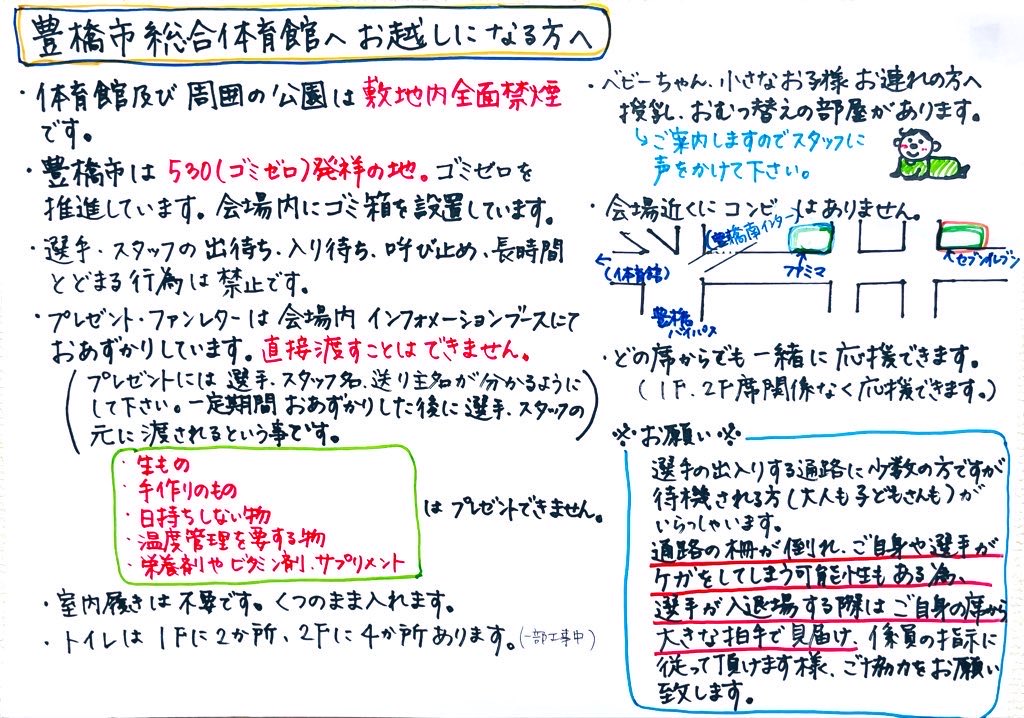 豊橋市総合体育館へお越しになる方へ
・体育館及び周囲の公園は敷地内全面禁煙
です。
・豊橋市は530(ゴミゼロ)発祥の地。ゴミゼロを
推進しています。会場内にゴミ箱を設置しています。
・選手・スタッフの出待ち、入り待ち、呼び止め、長時間
とどまる行為は禁止です。
・プレゼント・ファンレターは会場内インフォメーションブースにて
おあずかりしています。直接渡すことはできません。
(プレゼントには選手、スタッフ名、送り主名が分かるように
して下さい。一定期間おあずかりした後に選手、スタッフの
元に渡されるという事です。)
・生もの
・手作りのもの
・日持ちしない物
・温度管理を要する物
・栄養剤やビタミン剤、サプリメント
はプレゼントできません。
・室内履きは不要です。くつのまま入れます。
・トイレは1Fに2か所、2Fに4か所あります。(一部工事中)
・ベビーちゃん、小さなお子様お連れの方へ
授乳、おむつ替えの部屋があります。
↳ご案内しますのでスタッフに
声をかけて下さい。
・会場近くにコンビニはありません。
(豊橋南インター)
←
(体育館)
↑
ファミマ
↖セブンイレブン
豊橋
バイパス
・どの席からでも一緒に応援できます。
(1F、2F席関係なく応援できます。)
※お願い※
選手の出入りする通路に少数の方ですが
待機される方(大人も子どもさんも)が
いらっしゃいます。
通路の柵が倒れ、ご自身や選手が
ケガをしてしまう可能性もある為、
選手が入退場する際はご自身の席から
大きな拍手で見届け、係員の指示に
従って頂けます様、ご協力をお願い
致します。